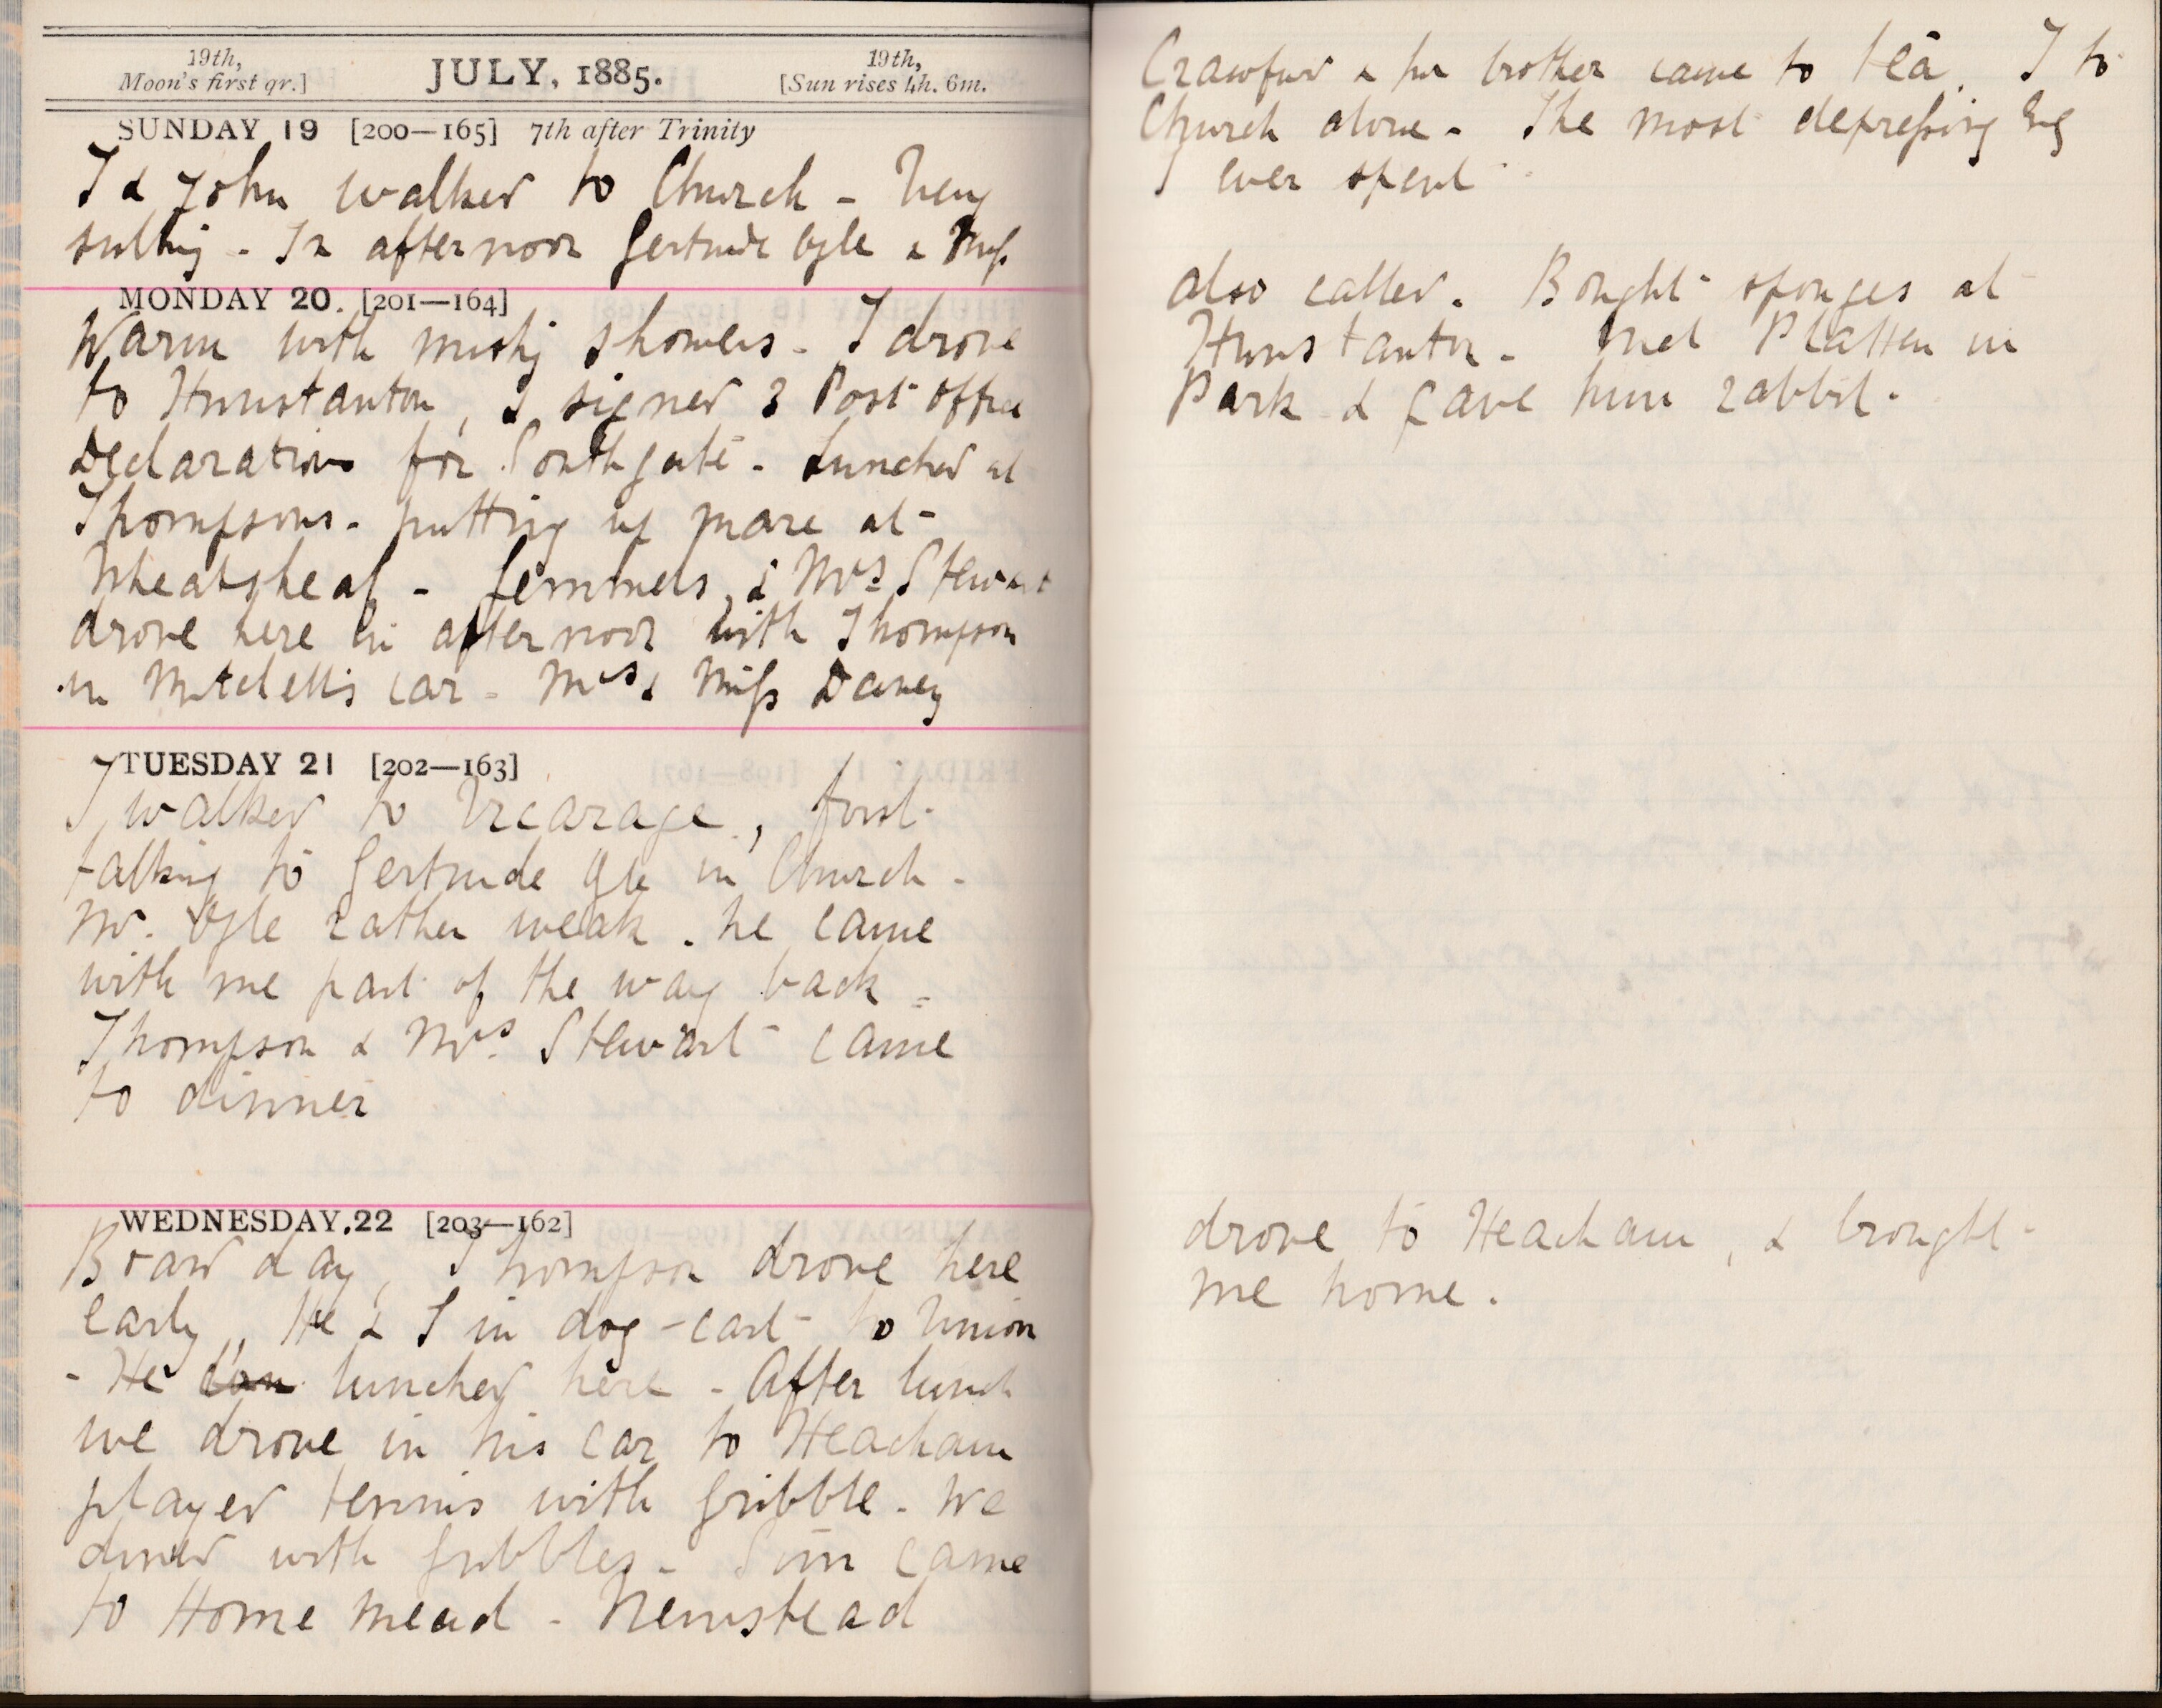 19th,
Moon's first qr.]
JULY, 1885.
19th,
[Sun rises 4h. 6m.
SUNDAY 19 [200—165] 7th after Trinity
I & John walked to Church - Very
sultry - In afternoon Gertrude Ogle & Miss
Crawfurd & her brother came to tea. I to
Church alone - The most depressing Evg
I ever spent
MONDAY 20. [201—164]
Warm with misty showers - I drove
to Hunstanton, & signed 3 Post Office
Declarations for Southgate - Lunched at
Thompsons - putting up mare at
Wheatsheaf - Gemmels, & Mrs Stewart
drove here in afternoon with Thompson
in Mitchell's car - Mrs & Miss Davey
also called. Bought sponges at
Hunstanton - Met Platten in
Park & gave him rabbit.
TUESDAY 21 [202—163]
I walked to Vicarage, first
talking to Gertrude Ogle in Church -
Mr. Ogle rather weak. he came
with me part of the way back =
Thompson & Mrs Stewart came
to dinner
WEDNESDAY.22 [203—162]
Board day, Thompson drove here
early, He & I in dog-cart to Union
- He lunched here - After lunch
we drove in his car to Heacham
played tennis with Gribble - We
dined with Gribbles - Sim came
to Home Mead - Newstead
drove to Heacham, & brought
me home.